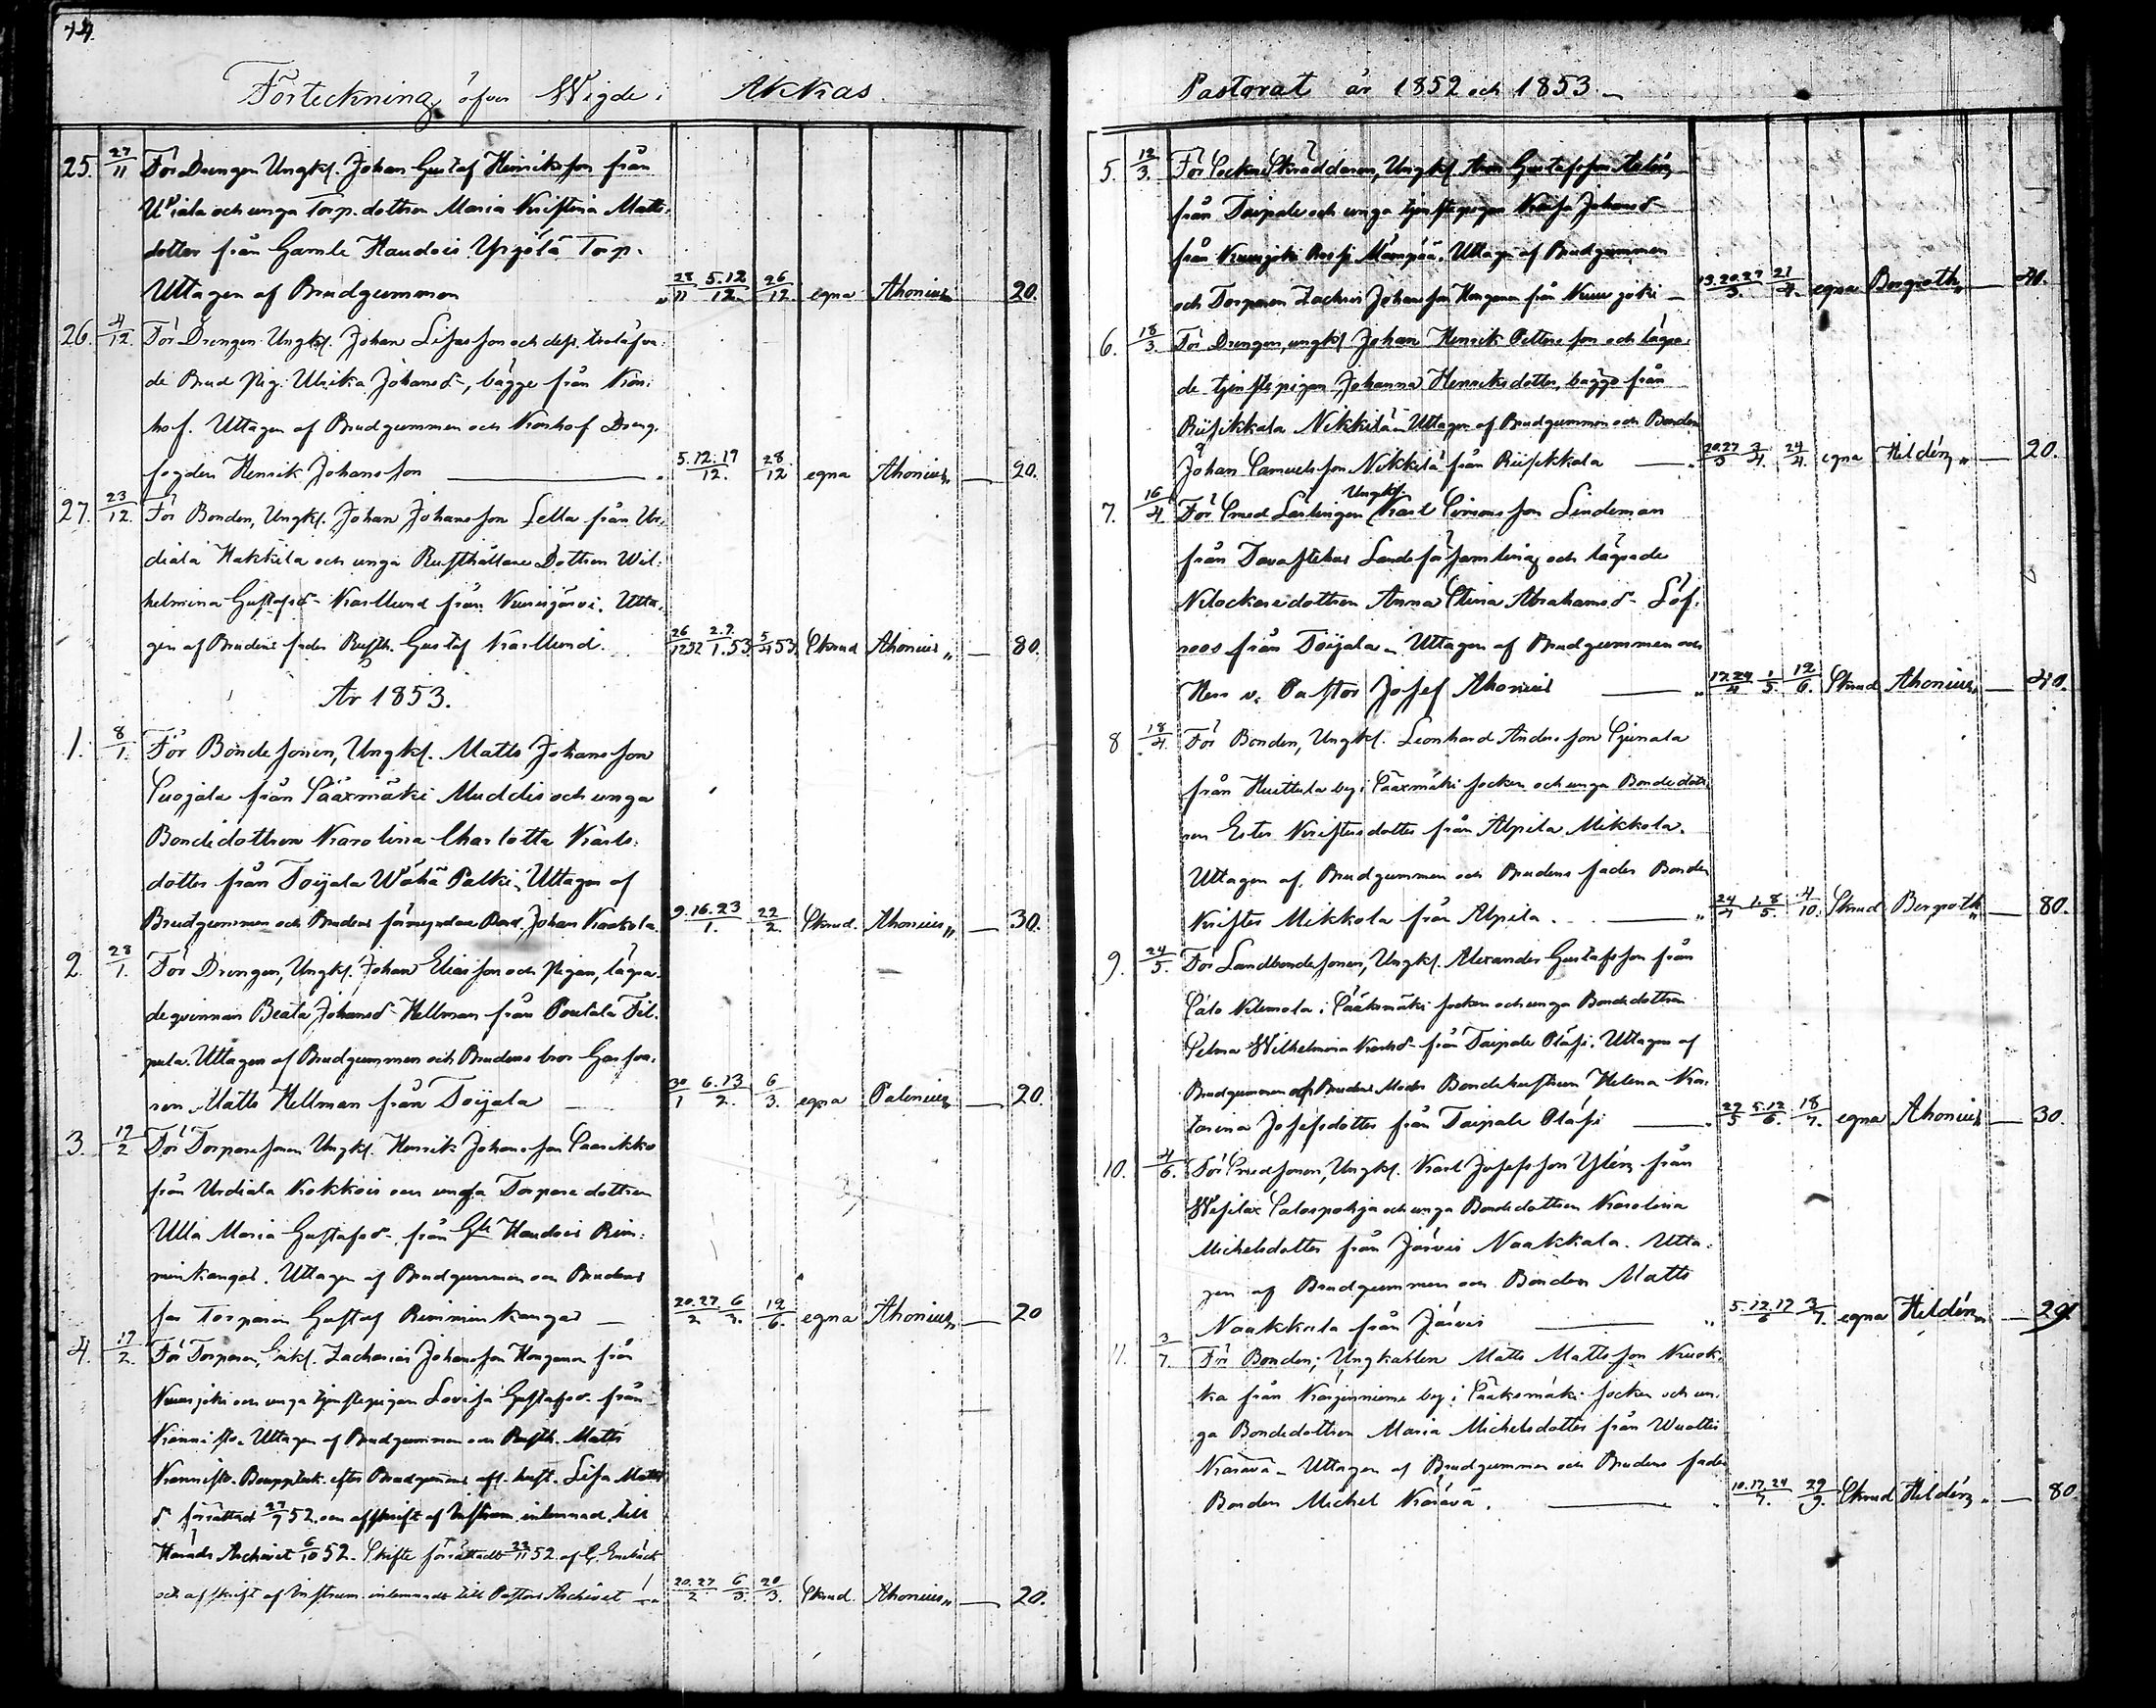 74.
Förteckning öfver Wigde i Akkas
25. 27/11 För Drengen Ungk. Johan Gustaf Henriksson från
Urjala och unga Torp. dottren Maria Kristina Matts-
dotter från Gamle Haudois Yrjölä Torp.
Uttagen af Brudgummen 28/11 5.12/12 26/12 egna Ahonius 20.
26. 4/12 För Drengen Ungk. Johan Lisasson och dess trolofva-
de Brud Pig. Ulrika Johansd., bägge från Kron-
hof. Uttagen af Brudgummen och Kronhof Dreng-
fogden Henrik Johansson 5.12.19/12. 28/12 egna Ahonius 20.
27. 23/12 För Bonden, Ungk. Johan Johansson Lella från Ur-
diala Hakkila och unga Rusthållare Dottren Wil-
helmina Gustafsd. Karllund från Kurisjärvi. Utta-
gen af Brudens fader Rusth. Gustaf Karllund. 26/12 52 2.9/1.53 5/4 53 Skrud Ahonius 80.
År 1853.
1. 8/1. För Bondesonen, Ungk. Matts Johansson
Suojala från Sääxmäki Muddis och unga
Bondedottren Karolina Charlotta Karls-
dotter från Toijala Wähä Palki, Uttagen af
Brudgummen och Brudens förmyndare Bond. Johan Kaakola. 9.16.23/1. 22/2. Skrud. Ahonius 30.
2. 28/1. För Drengen, Ungk. Johan Eliasson och Pigan, lägra-
de qvinnan Beata Johansd. Hellman från Pontala Fil-
pula. Uttagen af Brudgummen och Brudens bror Garfva-
ren Matts Hellman från Toijala 30/1 6.13/2. 6/3. egna Palenius 20.
3. 17/2 För Torparesonen Ungk. Henrik Johansson Saarikko
från Urdiala Kokkois och unga Torpare dottren
Ulla Maria Gustafsd. från Gle Haudois Rim-
minkangas. Uttagen af Brudgummen och Brudens
far Torparen Gustaf Rimminkangas 20.27/2 6/3. 12/6. egna Ahonius 20
4. 17/2. För Torparen, Enkl. Zacharias Johansson Hongana från
Kurisjoki och unga tjenstepigan Lovisa Gustafsd. från
Kännistö. Uttagen af Brudgummen och Rusth. Matts
Kännistö. Bouppteck. efter Brudgummens afl. hust. Lisa Matts
d. förrättad 27/9 52 och afskrift af Instrum. inlemnad till
Härads Archivet 6/10 52. Skifte förrättadt 23/11 52 af G. Enebäck
och afskrift af Instrum. inlemnadt till Pastors Archivet 20.27/2 6/3. 20/3. Skrud. Ahonius 20.
Pastorat år 1852 och 1853.
5. 12/3. För Sockne Skräddaren, Ungk. Gustafsson
från Taipale och unga tjenstepigan Johansd.
från Kurisjoki Mämpää. Uttagen af Brudgummen
och Torparen Zachris Johansson Hongana från Kurisjoki 13.20.27/3. 21/4. egna Bergroth 40.
6. 18/3. För Drengen, ungk. Johan Henrik Pettersson och lägra-
de tjenstepigan Johanna Henriksdotter, bägge från
Riisikkala Nikkilä. Uttagen af Brudgummen och Bonden
Johan Samuelsson Nikkilä från Riisikkala 20.27/3 3/4. 24/4. egna Hildén 20.
7. 16/4 För Smed Lärlingen Ungk. Karl Simonsson Lindeman
från Tavastehus Landsförsamling och lägrade
Klockaredottren Anna Stina Abrahamsd. Löf-
roos från Toijala. Uttagen af Brudgummen och
Herr v. Pastor Josef Ahonius 17.24/4 1/5. 12/6. Skrud Ahonius 40.
8 18/4. För Bonden, Ungk. Leonhard Andersson Gunala
från Huittula by i Sääxmäki socken och unga Bondedott-
ren Ester Kristersdotter från Alpila Mikkola.
Uttagen af Brudgummen och Brudens fader Bonden
Krister Mikkola från Alpila. 24/4 1.8/5. 4/10. Skrud Bergroth 80.
9. 24/5. För Landbondesonen, Ungk. Alexander Gustafsson från
Salo Klemola i Sääksmäki socken och unga Bondedottren
Selma Wilhelmina Karlsd. från Taipale Oläsi. Uttagen af
Brudgummen och Brudens Moder Bondehustrun Helena Ka-
tarina Josefsdotter från Taipale Oläsi 29/5 5.12/6. 18/7. egna Ahonius 30.
10. 4/6. För Smedsonen, Ungk. Karl Josefsson Ylén från
Wesilax Salospohja och unga Bondedottren Karolina
Michelsdotter från Järvis Naakkala. Utta-
gen af Brudgummen och Bonden Matts
Naakkala från Järvis 5.12.17/6 3/7. egna Hildén 20.
11. 3/7. För Bonden, Ungkarlen Matts Mattsson Kuok-
ka från Karjenniemi by i Sääksmäki socken och un-
ga Bondedottren Maria Michelsdotter från Wuoltis
Kärävä. Uttagen af Brudgummen och Brudens fader
Bonden Michel Kärävä. 10.17.24/7. 29/9. Skrud Hildén 80.